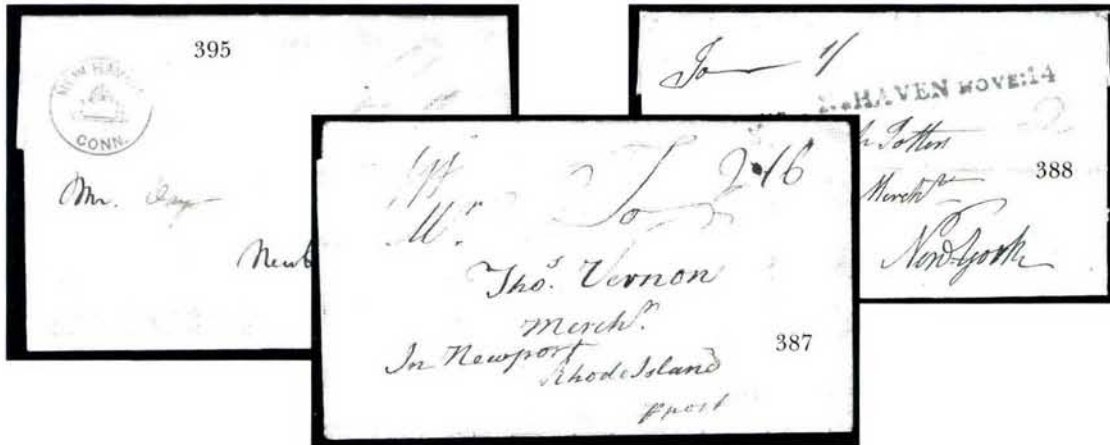 395
NEW HAVEN
CONN.
Mr.
To 2•16
Mr.
Thos. Vernon
Merchn.
In Newport
Rhode Island
ppost
387
To 1/
N.HAVEN NOVE:14
Totten
Merchn
New-York
388